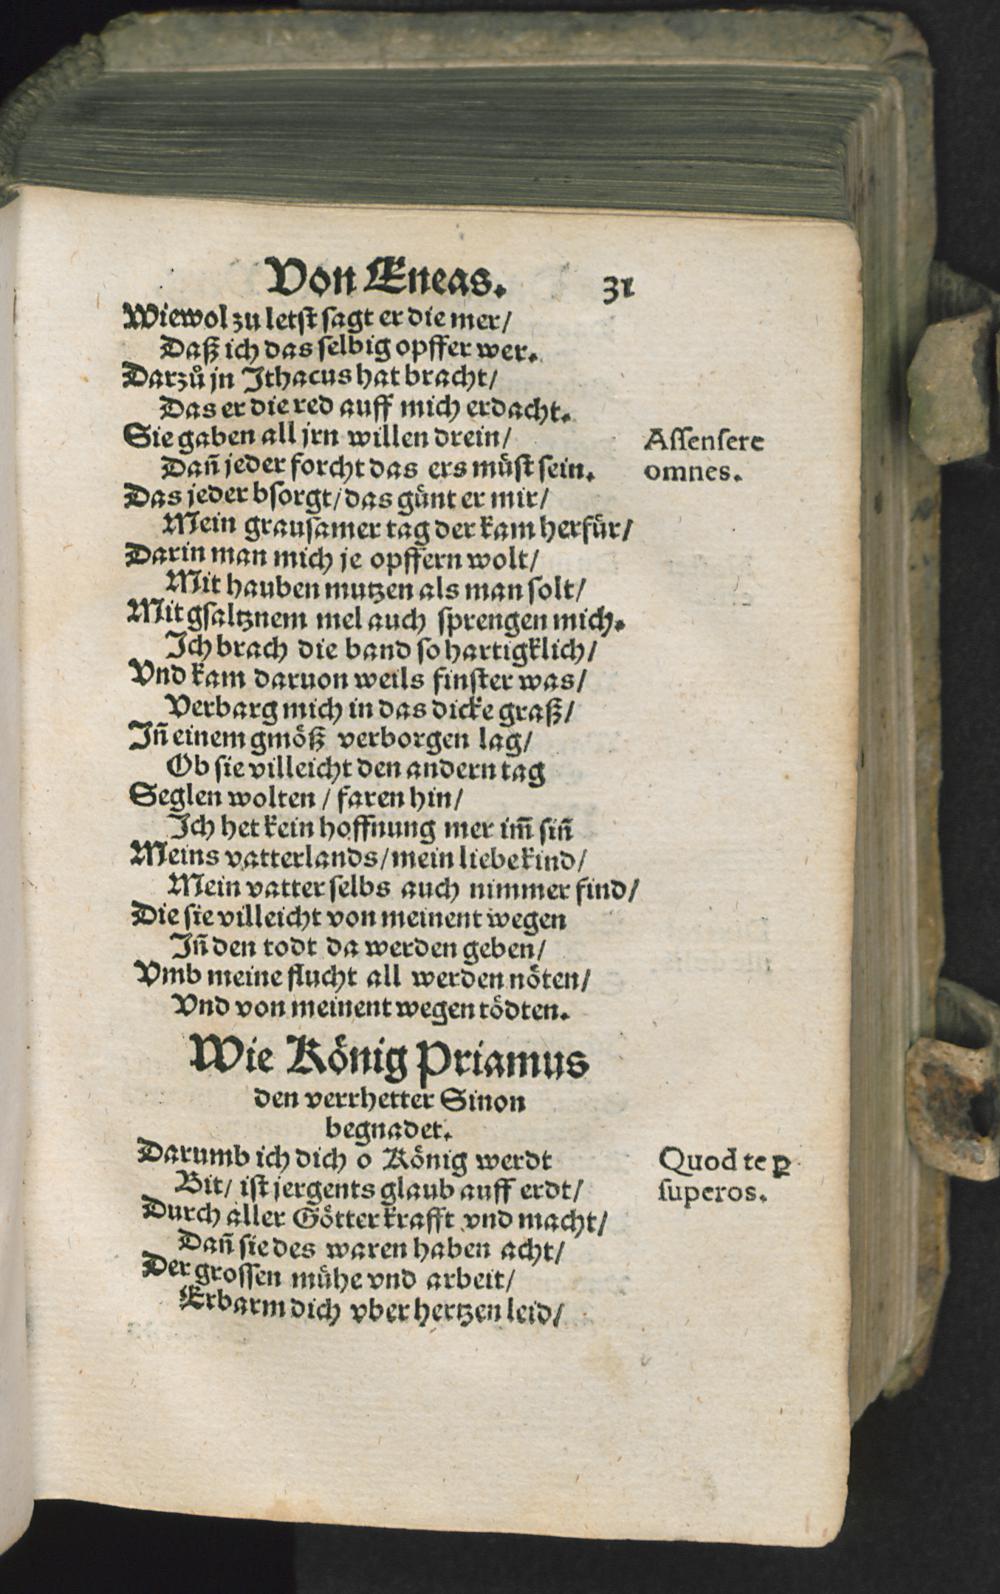 Von Æneas. 31
Wiewol zu letst sagt er die mer/
Daß ich das selbig opffer wer.
Darzů jn Ithacus hat bracht/
Das er die red auff mich erdacht.
Sie gaben all jrn willen drein/
Assensere
Dañ jeder forcht das ers müst sein.
omnes.
Das jeder bsorgt/ das günt er mir/
Mein grausamer tag der kam herfür/
Darin man mich je opffern wolt/
Mit hauben mutzen als man solt/
Mit gsaltznem mel auch sprengen mich.
Ich brach die band so hartigklich/
Vnd kam daruon weils finster was/
Verbarg mich in das dicke graß/
Iñ einem gmöß verborgen lag/
Ob sie villeicht den andern tag
Seglen wolten / faren hin/
Ich het kein hoffnung mer im̃ siñ
Meins vatterlands/ mein liebe kind/
Mein vatter selbs auch nimmer find/
Die sie villeicht von meinent wegen
Iñ den todt da werden geben/
Vmb meine flucht all werden nöten/
Vnd von meinent wegen tödten.
Wie König Priamus
den verrhetter Sinon
begnadet.
Darumb ich dich o König werdt
Quod te ꝑ
Bit/ ist jergents glaub auff erdt/
superos.
Durch aller Götter krafft vnd macht/
Dañ sie des waren haben acht/
Der grossen mühe vnd arbeit/
Erbarm dich vber hertzen leid/